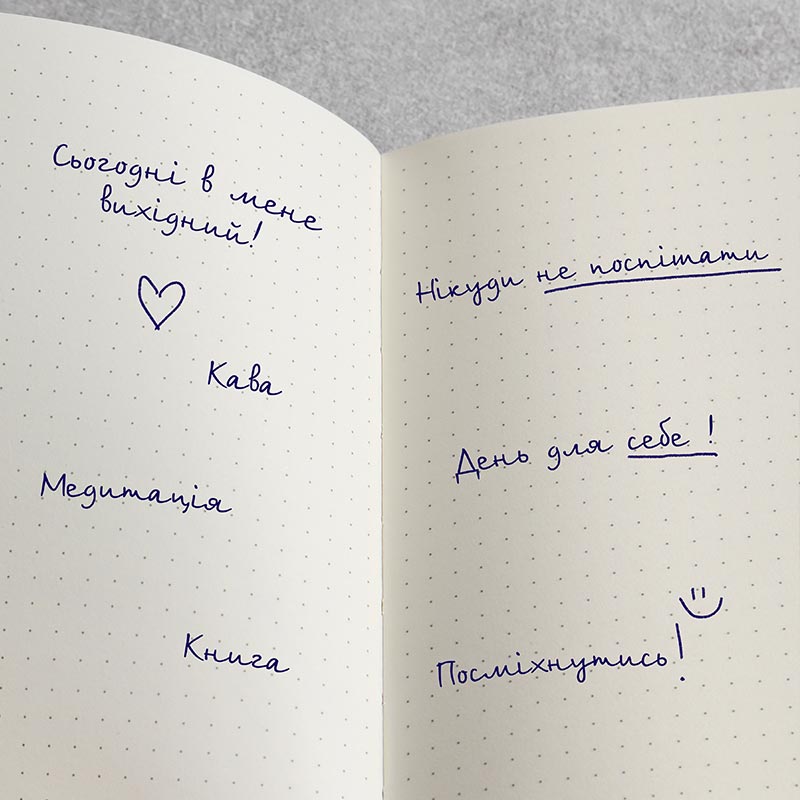 Сьогодні в мене
вихідний!
Кава
Медитація
Книга
Нікуди не поспішати
День для себе !
Посміхнутись!